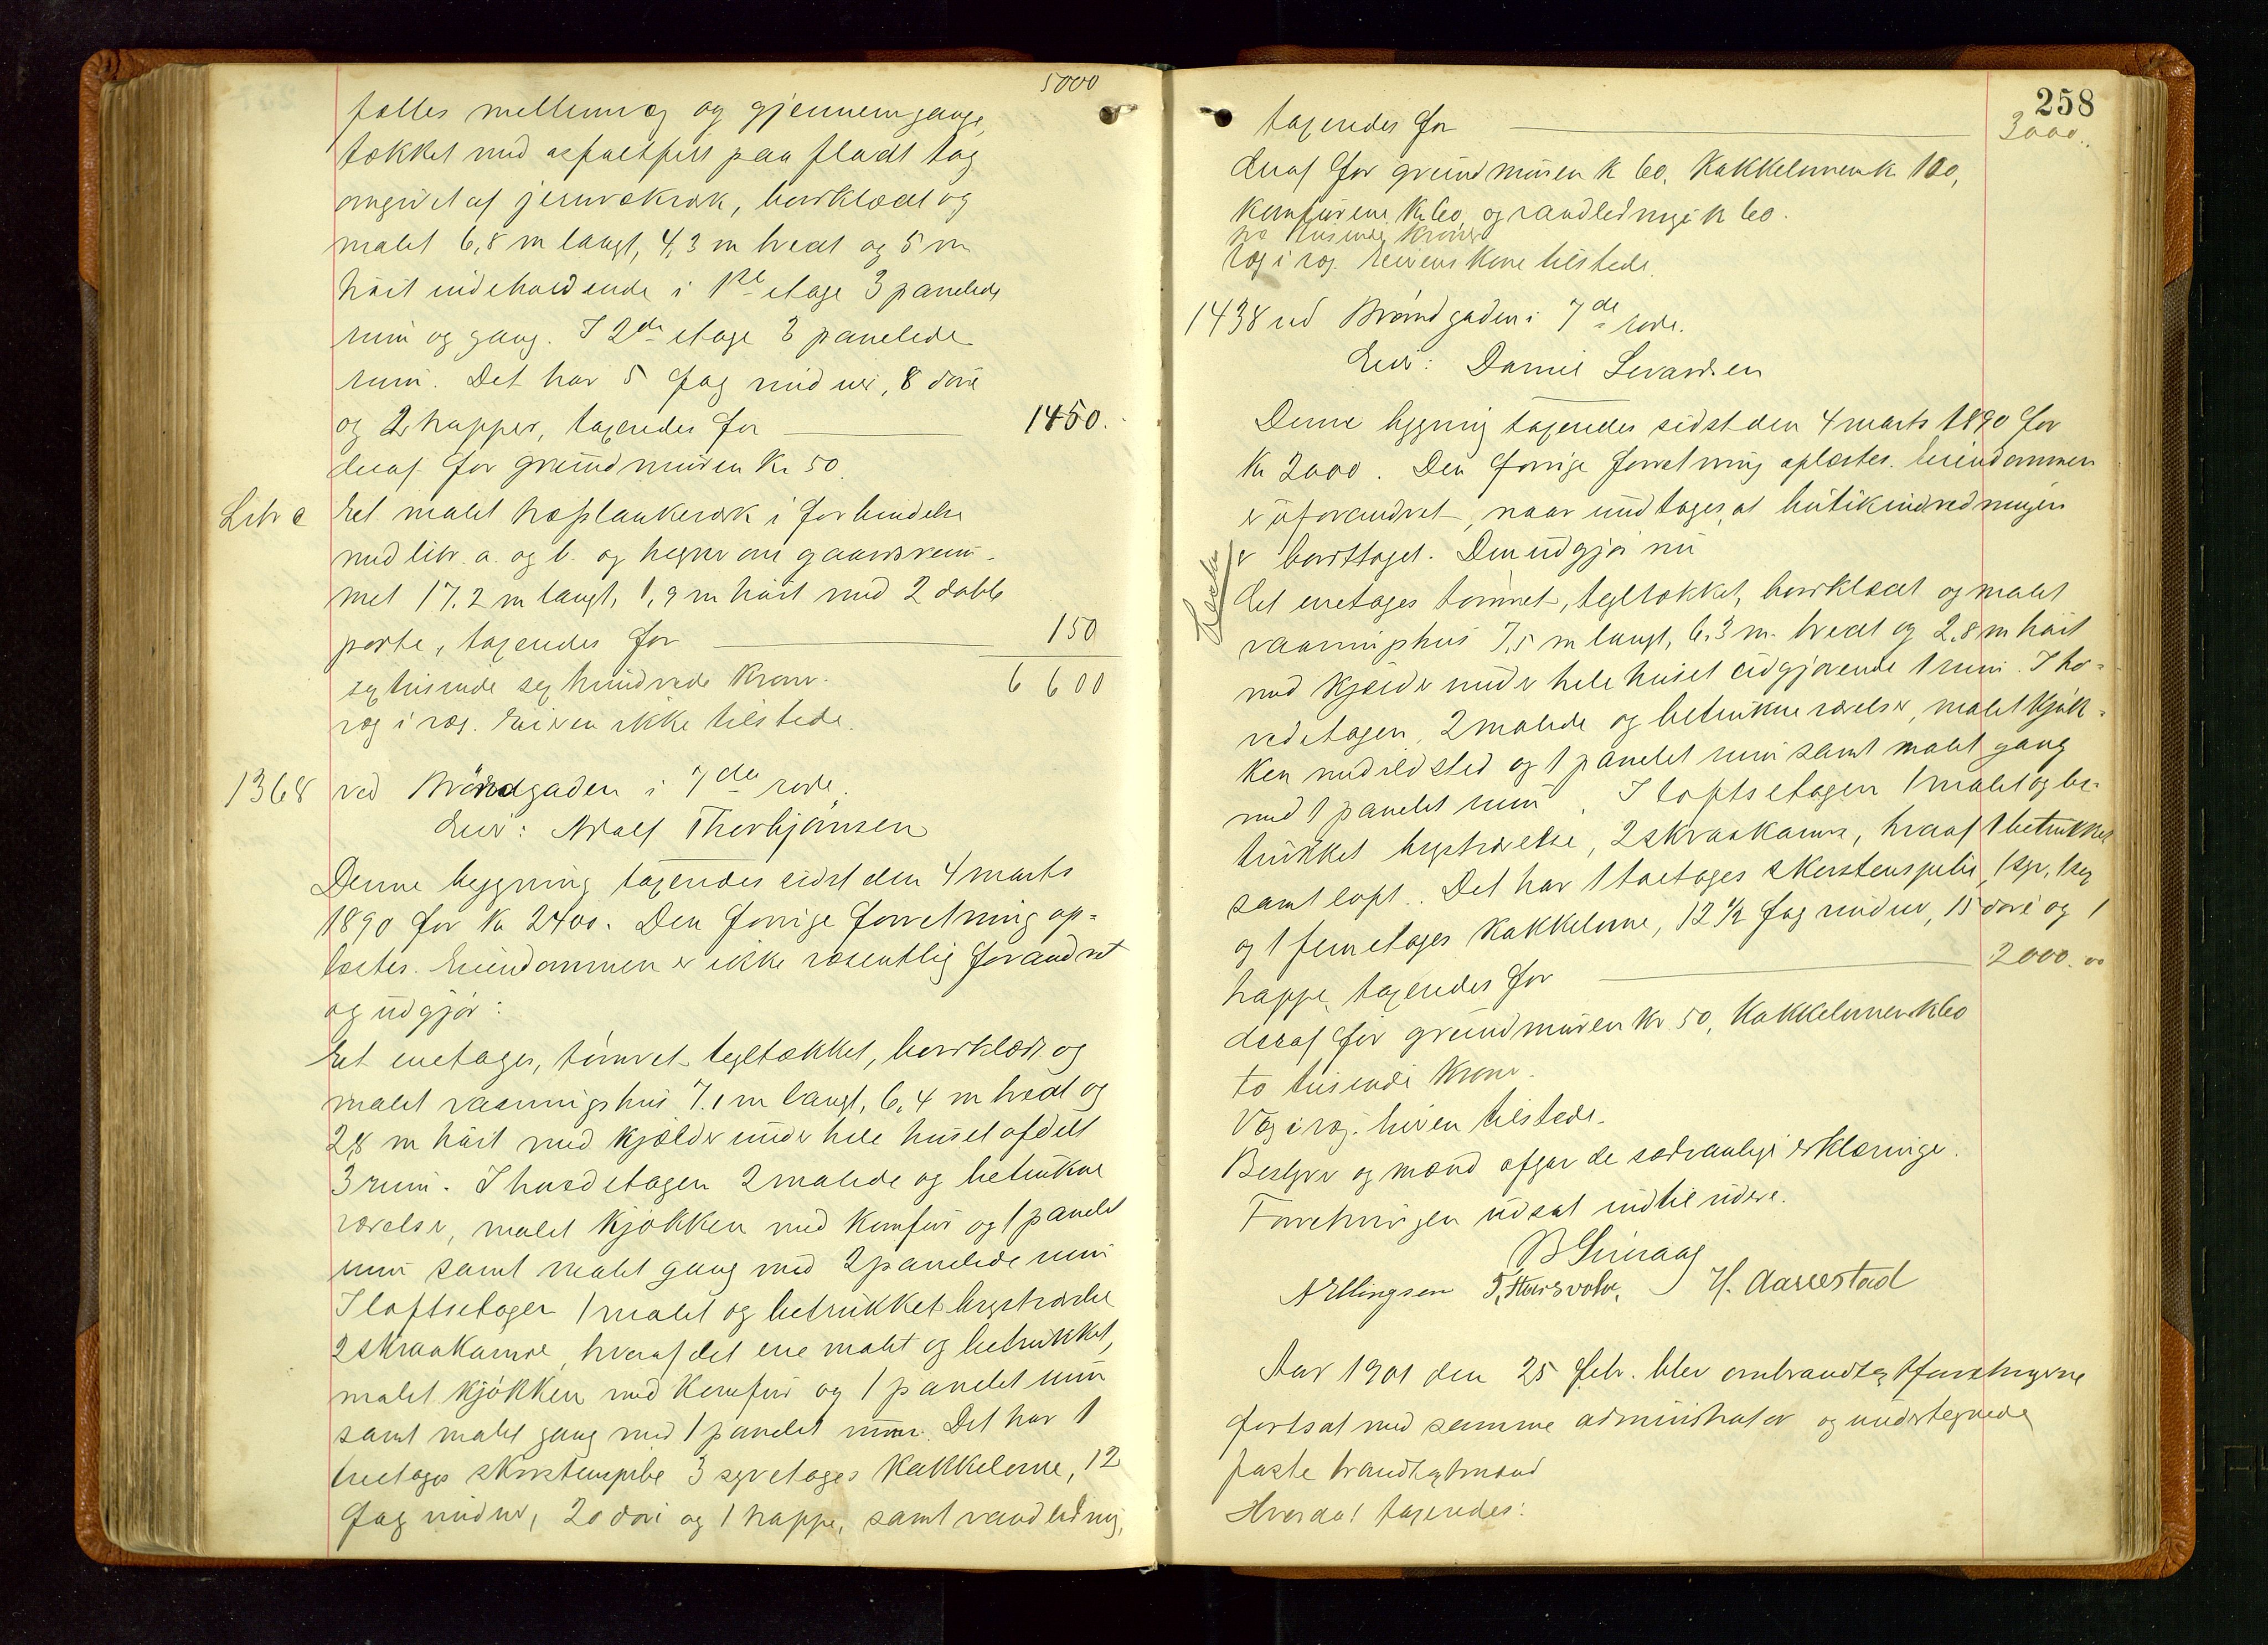 5000
fælles mellemvæg og gjennemgange,
tækket med asfaltfilt paa fladt tag
omgivet af jernrækværk, bordklædt og
malet 6,8 m langt, 4,3 m bredt og 5 m
höit indeholdende i 1ste etage 3 panelede
rum og gang. I 2den etage 3 panelede
rum. Det har 5 fag vinduer, 8 döre
og 2 trapper, taxeredes for 1450.
deraf for grundmuren Kr 50.
Litr c Et malet træplankeværk i forbindelse
med litr. a. og b. og hegner om gaardsrum-
met 17.2 m langt, 1,9 m höit med 2 doble
porte, taxeredes for 150
sextusinde sexhundrede Kroner. 6 600
væg i væg. Eieren ikke tilstede.
1368 ved Brøndgaden i 7de rode.
Eier: Adolf Thorbjørnsen
Denne bygning taxeredes sidst den 4 marts
1890 for Kr 2400. Den forrige forretning op=
læstes. Eiendommen er ikke væsentlig forandret
og udgjør:
Et enetages, tömret tegltækket, bordklædt og
malet vaaningshus 7.1 m langt, 6,4 m bredt og
2,8 m höit med kjælder under hele huset afdelt
3 rum. I hovedetagen 2 malede og betrukne
værelser, malet kjökken med komfur og 1 panelet
rum samt malet gang med 2 panelede rum
I loftsetagen 1 malet og betrukket kvistværelse
2 skraakamre, hvoraf det ene malet og betrukket,
malet kjökken med komfur og 1 panelet rum
samt malet gang med 1 panelet rum. Det har 1
toetages skorstenspibe 3 syvetages kakkelovne, 12
fag vinduer, 20 döre og 1 trappe, samt vandledning,
258
taxeredes for 3000..
deraf for grundmuren Kr 60, Kakkelovnen Kr 100,
Komfurene Kr 60, og vandledningen Kr 60.
tre tusinde Kroner
væg i væg. Eierens Kone tilstede.
1438 ved Brøndgaden i 7de rode.
Eier: Daniel Sivardsen
Denne bygning taxeredes sidst den 4 marts 1890 for
Kr 2000. Den forrige forretning oplæstes. Eiendommen
er uforandret, naar undtages, at butikindredningen
er borttaget. Den udgjør nu
Et enetages tömret, tegltækket, bordklædt og malet
vaaningshus 7,5 m langt, 6,3 m. bredt og 2,8 m höit
med kjælder under hele huset udgjørende 1 rum. I ho-
vedetagen, 2 malede og betrukne værelser, malet kjök-
ken med ildsted og 1 panelet rum samt malet gang
med 1 panelet rum. I loftsetagen 1 malet og be-
trukket kvistværelse, 2 skraakamre, hvoraf 1 betrukket
samt loft.. Det har 1 toetages skorstenspibe, 1 syv, 1 sex
og 1 femetages kakkelovne, 12 1/2 fag vinduer, 15 döre og 1
trappe, taxeredes for 2000.00
deraf for grundmuren Kr 50, Kakkelovnen Kr 60
to tusinde Kroner.
Væg i væg. Eieren tilstede.
Bestyrer og mænd afgav de sædvanlige erklæringer.
Forretningen udsat indtil videre.
B Grimaag
A Ellingsen H. Aarrestad
Aar 1901 den 25 febr. blev ombrandtaxtforretningerne
fortsat med samme administrator og undertegnede
faste brandtaxtmænd
Hverda! taxeredes: